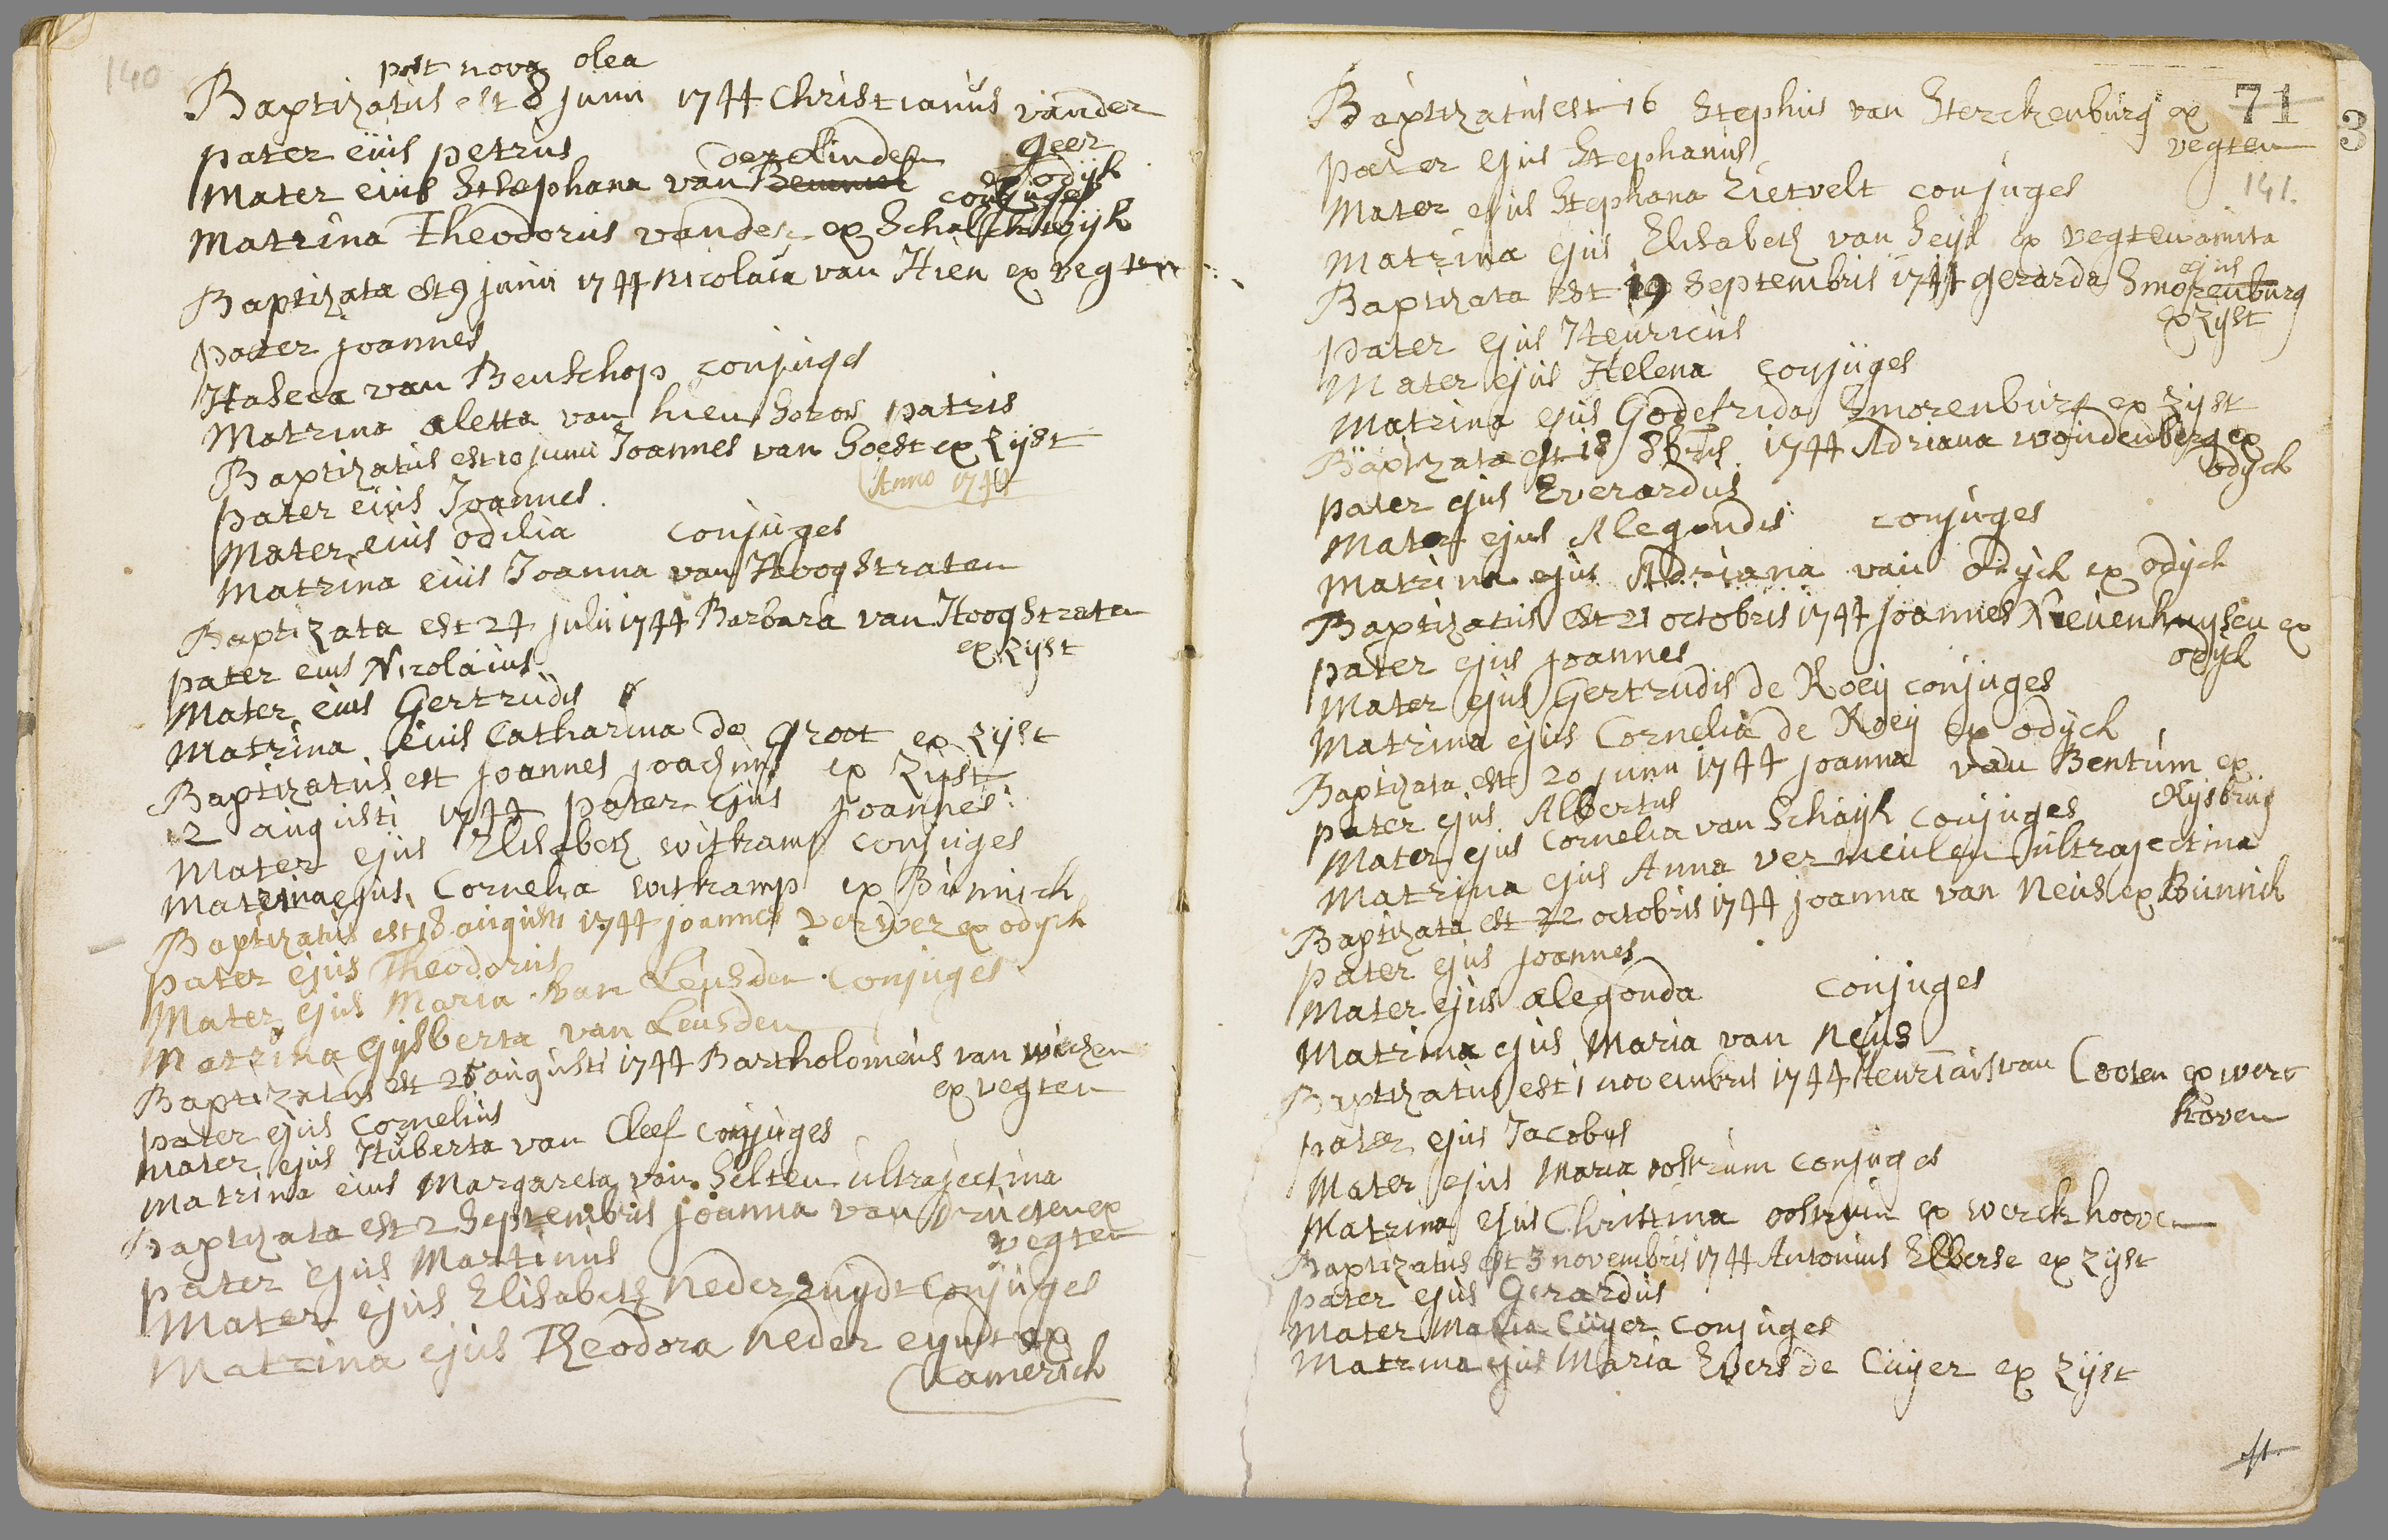 140
post nova olea
Baptizatus est 8 junii 1744 Christianus vander
geer
pater eius petrus
ex odijk
der Linden
Mater eius Stephana van Bemmel conjuges
Matrina Theodorus vander ex Schalckwijk
Baptizata est 9 junii 1744 nicolaia van Hien ex vegten
pater joannes
Haseca van Benschop conjuges
Matrina aletta van hien soror patris
Baptizatus est 10 junii Joannes van Soest ex Zijst
Anno 1744
pater eius Joannes
Mater eius odilia conjuges
Matrina eius Joanna van Hoogstraten
Baptizata est 24 julii 1744 Barbara van Hoogstraten
ex Zijst
pater eius Nicolaius
Mater eius Gertrudis
Matrina eius Catharina de groot ex Zijst
Baptizatus est joannes joachim ex Zijst
2 augusti 1744 pater ejus joannes
Mater ejus Elisabeth witkamp conjuges
Matrina ejus Cornelia witkamp ex Bunnick
Baptizatus est 18 augusti 1744 joannes verwer ex odijck
pater ejus Theodorus
Mater ejus Maria van Leusden conjuges
Matrina Gijsberta van Leusden
Baptizatus est 25 augusti 1744 Bartholomeus van wichen
ex vegten
pater ejus Cornelius
Mater ejus Huberta van Cleef conjuges
Matrina eius Margareta van Selten ultrajectina
Baptizata est 2 Septembris joanna van Drueten ex
vegten
pater ejus Martinus
Mater ejus Elisabeth Neder euijdt conjuges
Matrina ejus Theodora Neder eijndt ex
Kamerick
71
3
Baptizatus est 16 Stephus van Sterckenburg ex
vegten
141.
pater ejus Stephanus
Mater ejus Stephana Zietvelt conjuges
Matrina ejus Elisabeth van Seijl ex vegten amita
ejus
Baptizata est 19 Septembris 1744 gerarda Smorenburg
ex Zijst
pater ejus Henricus
Mater ejus Helena conjuges
Matrina ejus Godefrida Smorenburg ex Zijst
Baptizata est 18 8bris 1744 Adriana woudenberg ex
odijck
pater ejus Everardus
Mater ejus Alegondis conjuges
Matrina ejus Adriana van Odijck ex odijck
Baptizatus est 21 octobris 1744 joannes Nieuenhuijsen ex
odijck
pater ejus joannes
Mater ejus Gertrudis de Roeij conjuges
Matrina ejus Cornelia de Roeij ex odijck
Baptizata est 20 junii 1744 joanna van Bentum ex
Rijsbrug
pater ejus Albertus
Mater ejus Cornelia van Schaijk conjuges
Matrina ejus Anna vermeulen ultrajectina
Baptizata est 22 octobris 1744 joanna van Neus ex Bunnik
pater ejus joannes
Mater ejus alegonda conjuges
Matrina ejus Maria van Neus
Baptizatus est 1 novembris 1744 Henricus van Cooten ex werc
hoven
pater ejus Jacobus
Mater ejus Maria oostrum conjuges
Matrina ejus Christina oostrum ex werckhooven
Baptizatus est 3 novembris 1744 Antonius Elberse ex Zijst
pater ejus Gerardus
Mater Maria Cuijer conjuges
Matrina ejus Maria Evers de Cuijer ex Zijst